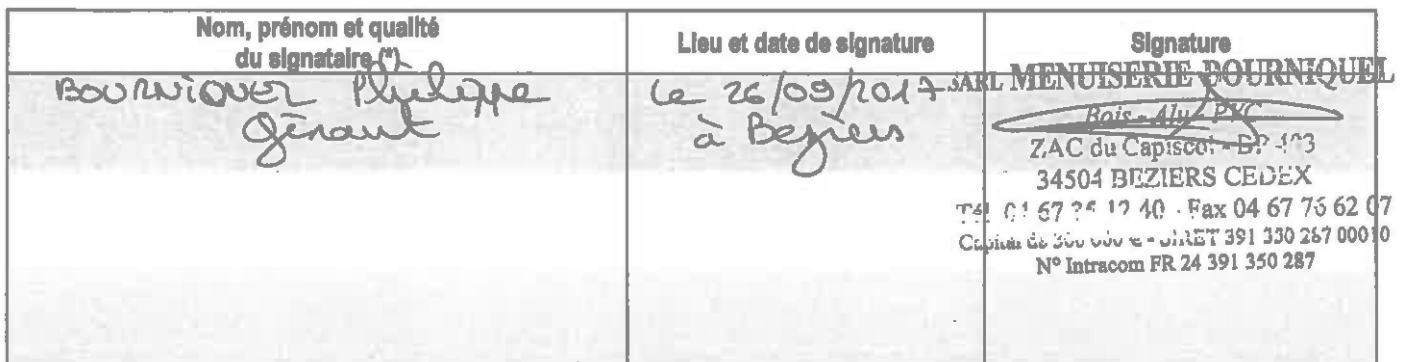 Nom, prénom et qualité
du signataire (*)
Lieu et date de signature
Signature
BOURNIQUEL Philippe
Gérant
Le 26/09/2017
à Beziers
SARL MENUISERIE BOURNIQUEL
Bois - Alu - PVC
ZAC du Capiscol - BP
34504 BEZIERS CEDEX
Tél 04 67 40 - Fax 04 67 76 62 07
Capital de € - SIRET 391 350 287 00010
N° Intracom FR 24 391 350 287